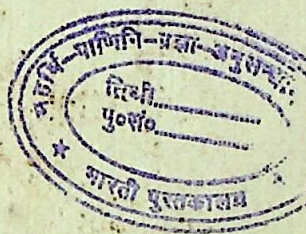 महर्षि-पाणिनि-प्रज्ञा-अनुसन्धा
तिथी..............
पु०सं०..............
भारती पुस्तकालय